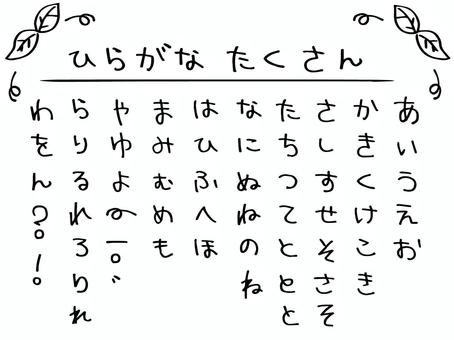 ひらがな たくさん
あいうえお
かきくけこき
さしすせそさそ
たちつてとゝと
なにぬねのね
はひふへほ
まみむめも
やゆよ〜ー。、
らりるれろりれ
わをん?!